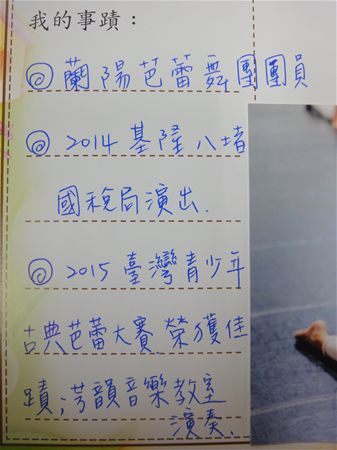 我的事蹟：
◎ 蘭陽芭蕾舞團團員
◎ 2014 基隆八堵
國稅局演出.
◎ 2015 臺灣青少年
古典芭蕾大賽.榮獲佳
蹟；芳韻音樂教室
演奏.